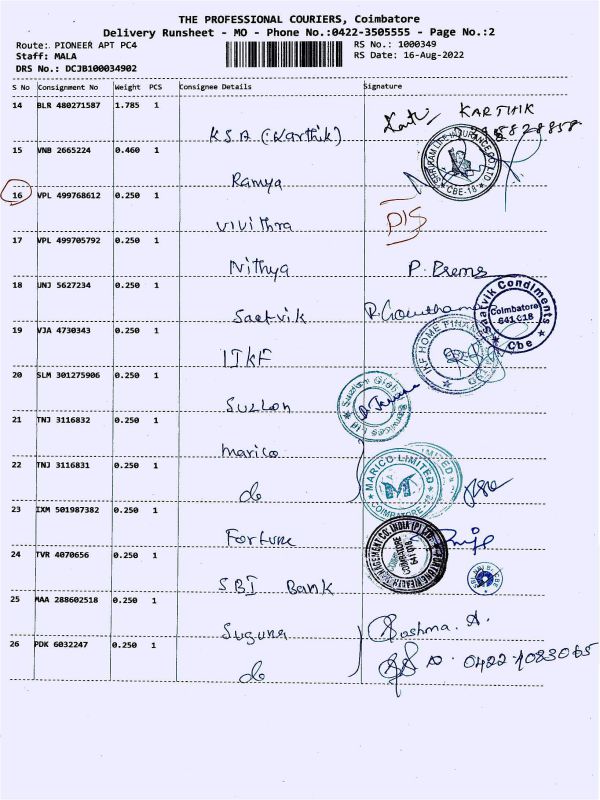 THE PROFESSIONAL COURIERS, Coimbatore
Delivery Runsheet - MO - Phone No.:0422-3505555 - Page No.:2
Route: PIONEER APT PC4 RS No.: 1000349
Staff: MALA RS Date: 16-Aug-2022
DRS No.: DCJB100034902
S No Consignment No Weight PCS Consignee Details Signature
14 BLR 480271587 1.785 1
KARTHIK
K.S.A (Karthik)
15 VNB 2665224 0.460 1
SHRIRAM LIFE INSURANCE CO LTD
CBE-18
Ramya
16 VPL 499768612 0.250 1
Vivithra
D/S
17 VPL 499705792 0.250 1
Nithya P. Prema
18 UNJ 5627234 0.250 1
Saatvik Condiments
Coimbatore
641018
Cbe
Saatvik
19 VJA 4730343 0.250 1
IKF HOME FINANCE
IIKF
20 SLM 301275906 0.250 1
Suzlon Global Services Ltd
Suzlon
21 TNJ 3116832 0.250 1
Marico
22 TNJ 3116831 0.250 1
MARICO LIMITED
COIMBATORE
M
do
23 IXM 501987382 0.250 1
Fortune
24 TVR 4070656 0.250 1
SBI Bank
25 MAA 288602518 0.250 1
Suguna
26 PDK 6032247 0.250 1
do